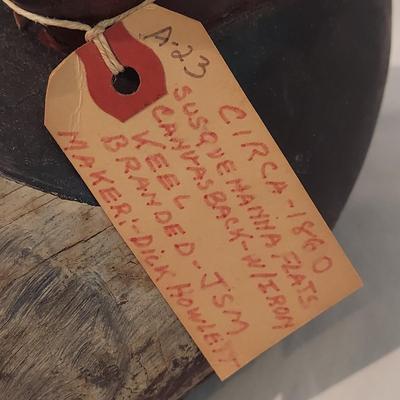 A-23
CIRCA-1860
SUSQUEHANNA FLATS
CANVASBACK-W/IRON
KEEL
BRANDED-JSM
MAKER:-DICK HOWLETT